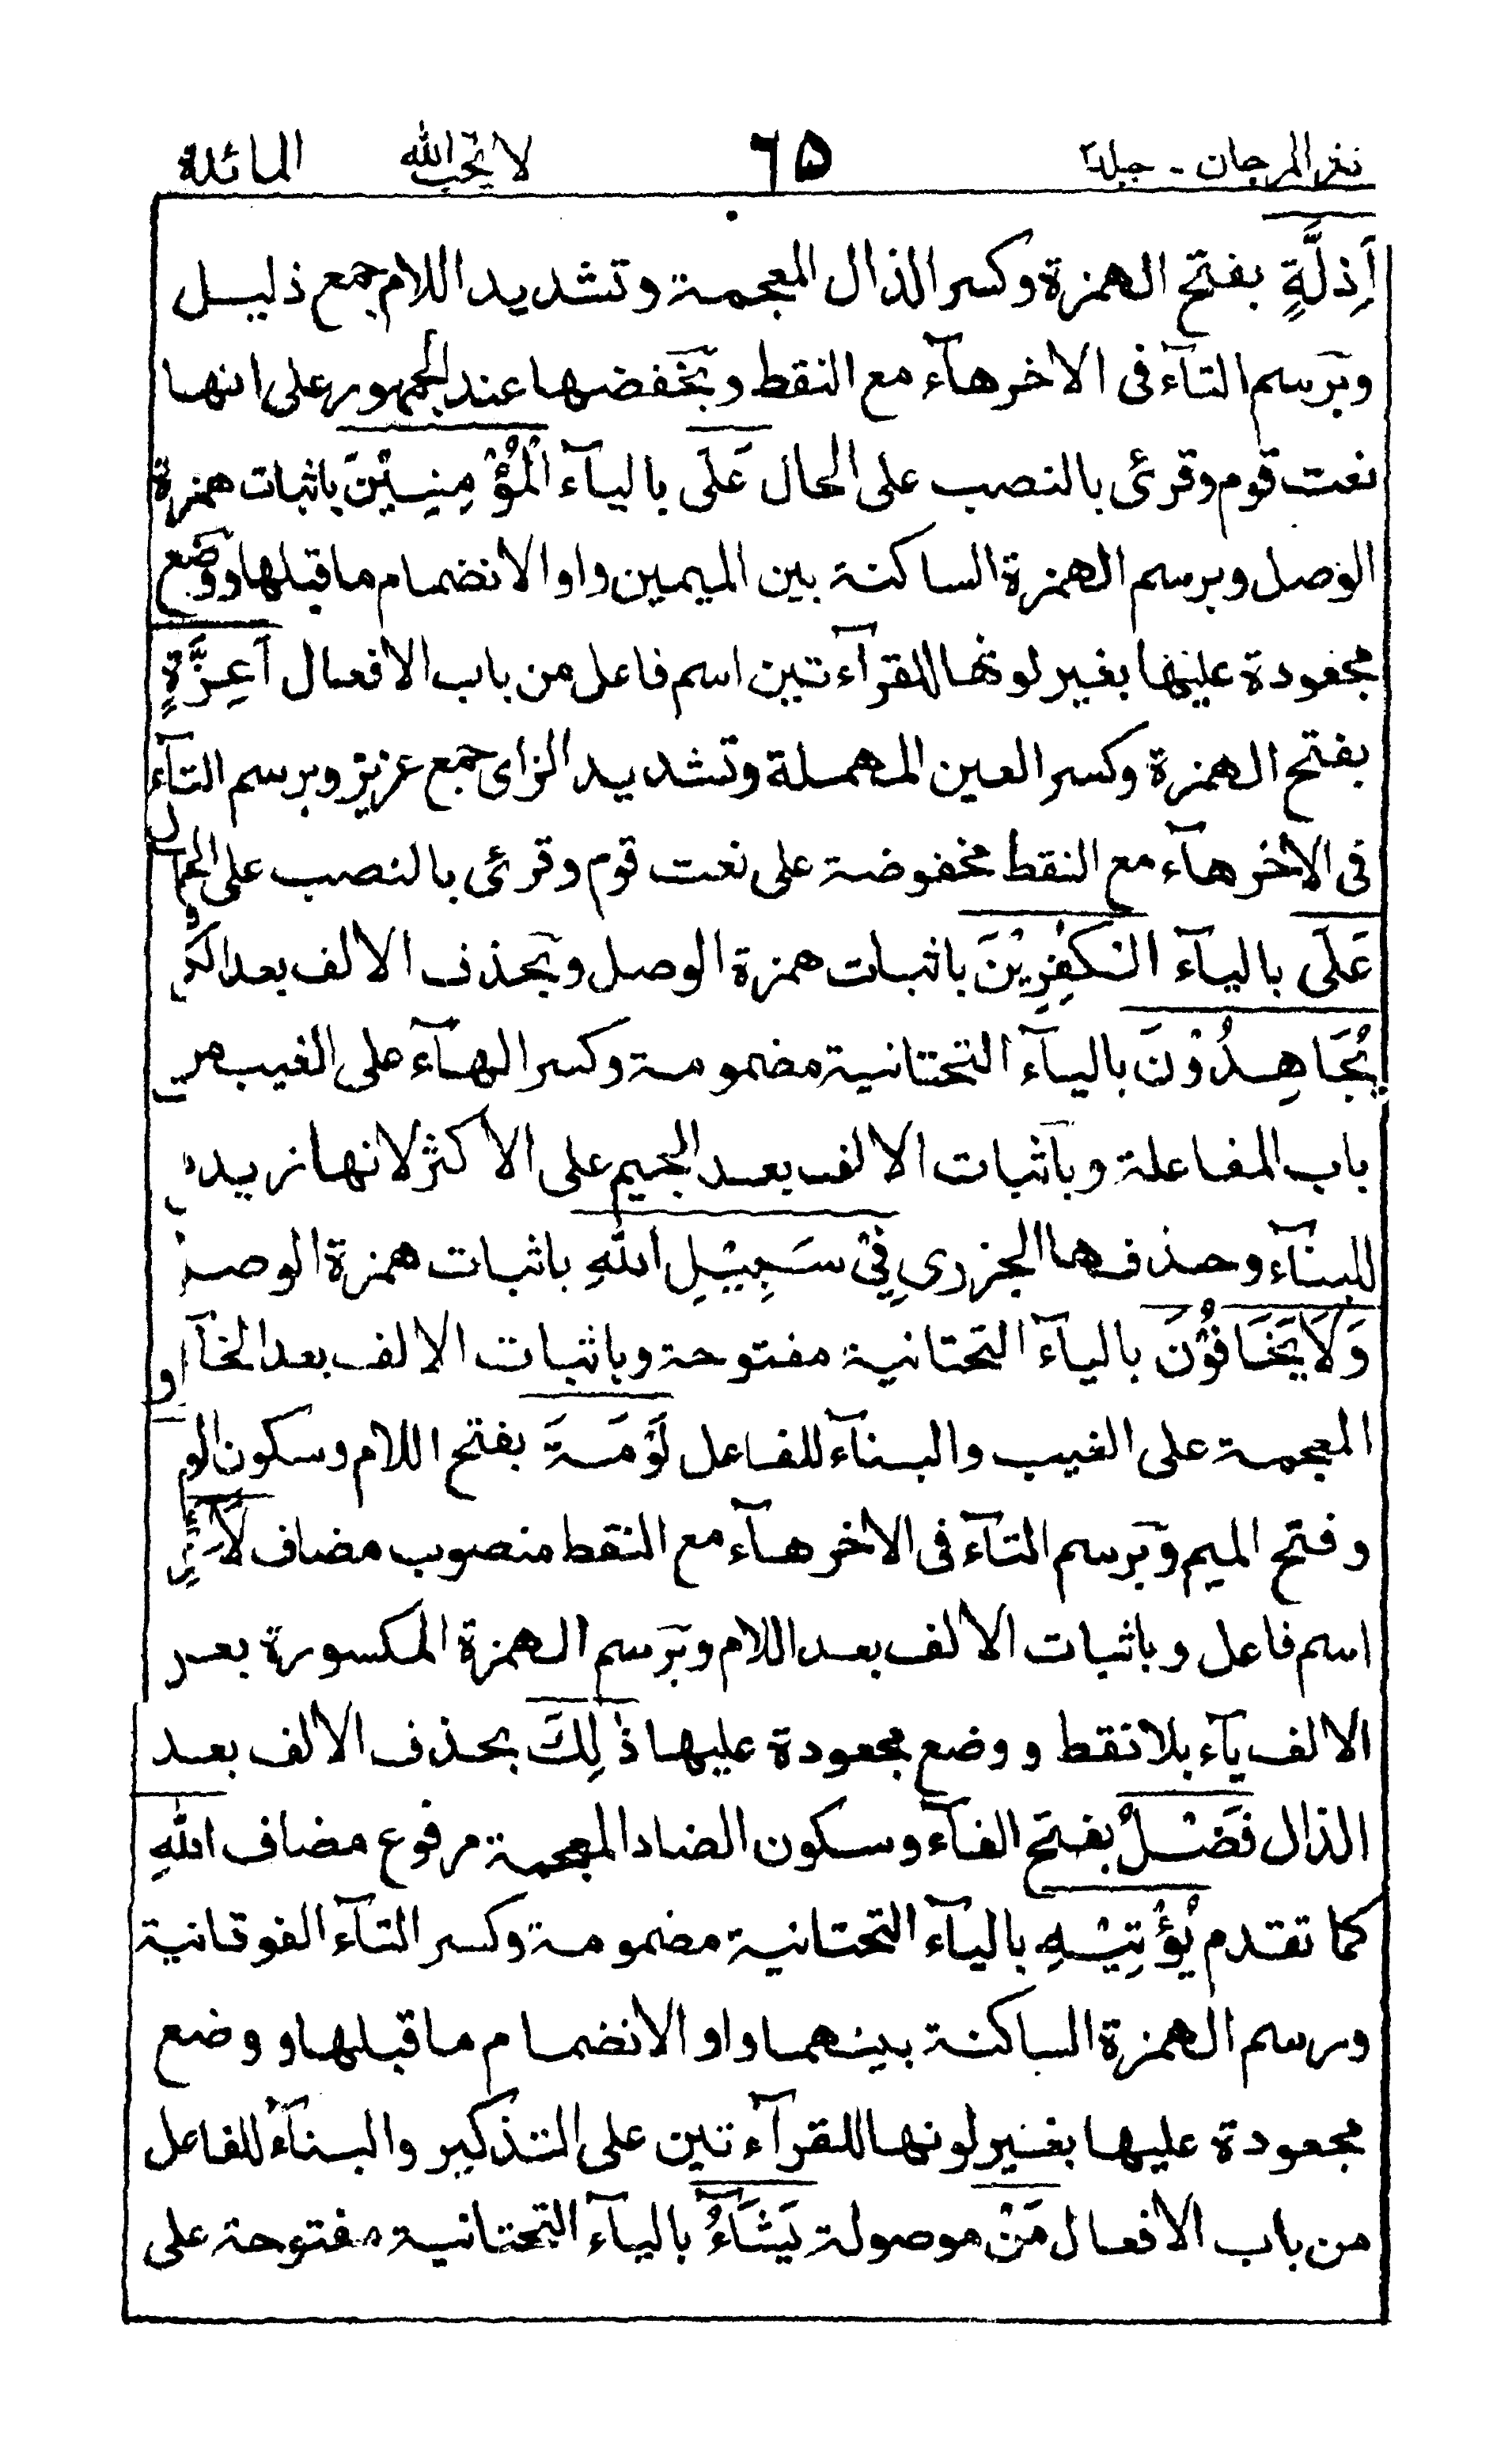 نثر المرجان - جلد٢ ٦٥ لا يحب الله المائدة
اَذِلَّةٍ بفتح الهمزة وكسر الذال المعجمة وتشديد اللام جمع ذليل
وبرسم التآء فى الاخر هآء مع النقط وبخفضها عند الجمهور على انها
نعت قوم وقرئ بالنصب على الحال عَلَى باليآء الْمُؤْمِنِيْنَ باثبات همزة
الوصل وبرسم الهمزة الساكنة بين الميمين واوا لانضمام ما قبلها ووضع
مجعودة عليها بغير لونها للقرآءتين اسم فاعل من باب الافعال اَعِزَّةٍ
بفتح الهمزة وكسر العين المهملة وتشديد الزاى جمع عزيز وبرسم التآء
فى الاخر هآء مع النقط مخفوضة على نعت قوم وقرئ بالنصب على الحال
عَلَى باليآء الْكٰفِرِيْنَ باثبات همزة الوصل وبحذف الالف بعد الكاف
يُجَاهِدُوْنَ باليآء التحتانية مضمومة وكسر الهآء على الغيب من
باب المفاعلة وباثبات الالف بعد الجيم على الاكثر لانها زيدت
للبنآء وحذفها الجزرى فِىْ سَبِيْلِ اللّٰهِ باثبات همزة الوصل
وَلَا يَخَافُوْنَ باليآء التحتانية مفتوحة وباثبات الالف بعد الخآء
المعجمة على الغيب والبنآء للفاعل لَوْمَةَ بفتح اللام وسكون الواو
وفتح الميم وبرسم التآء فى الاخر هآء مع النقط منصوب مضاف لَآئِمٍ
اسم فاعل وباثبات الالف بعد اللام وبرسم الهمزة المكسورة بعد
الالف يآء بلا نقط ووضع مجعودة عليها ذٰلِكَ بحذف الالف بعد
الذال فَضْلُ بفتح الفآء وسكون الضاد المعجمة مرفوع مضاف اللّٰهِ
كما تقدم يُؤْتِيْهِ باليآء التحتانية مضمومة وكسر التآء الفوقانية
وبرسم الهمزة الساكنة بينهما واوا لانضمام ما قبلها ووضع
مجعودة عليها بغير لونها للقرآءتين على التذكير والبنآء للفاعل
من باب الافعال مَنْ موصولة يَشَآءُ باليآء التحتانية مفتوحة على